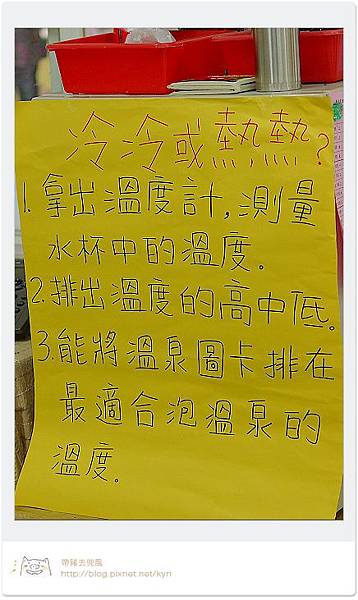 冷冷或熱熱?
1.拿出溫度計,測量
水杯中的溫度。
2.排出溫度的高中低。
3.能將溫泉圖卡排在
最適合泡溫泉的
溫度。
帶豬去兜風
http://blog.pixnet.net/kyn